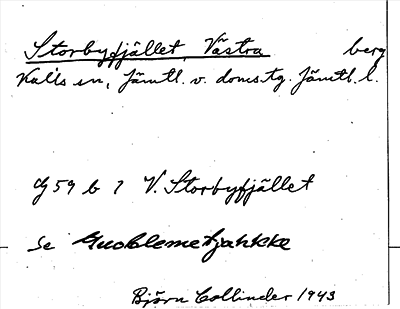 Storbyfjället, Västra berg
Kalls sn, Jämtl. v. doms.tg. Jämtl. l.
G 59 b 7 V. Storbyfjället
Se Guoblemetjahkke
Björn Collinder 1943